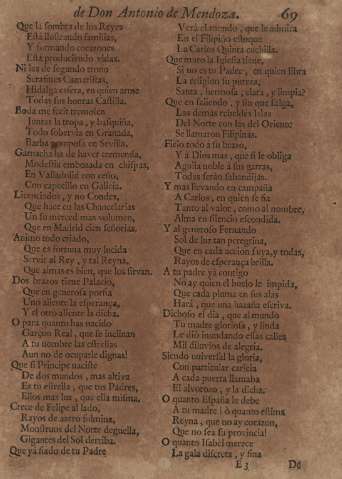 de Don Antonio de Mendoza. 69
Que la sombra de los Reyes
Està ilustrando familias,
Y formando corazones
Està produciendo vidas.
Ni las de segundo trono
Infantines Camaristas,
Hidalga esfera, en quien arma
Todas sus honras Castilla.
Boda me fecit tremolen
Juntas la tropa, y basquiña,
Todo sobervia en Granada,
Barba       en Sevilla.
Garnacha ha de haver tremenda,
Modestia embozada en chispas,
En Valladolid con ceño,
Con capotillo en Galicia.
Licenciados, y no Condes,
Que hace en las Chancilerias
Un su merced mas volumen,
Que en Madrid cien señorias.
Animo todo criado,
Que es fortuna muy lucida
Servir al Rey, y tal Reyna,
Que almas es bien, que los sirvan.
Dos brazos tiene Palacio,
Que en generosa porfia
Uno aliente la esperança,
Y el otro aliente la dicha.
O para quanto has nacido
Garçon Real, que se inclinan
A tu nombre las estrellas
Aun no de ocuparle dignas!
Que si Principe naciste
De dos mundos, mas altiva
Es tu estrella, que tus Padres,
Ellos mas luz, que ella misma.
Crece de Felipe al lado,
Rayos de astro fulmina,
Monstruos del Norte deguella,
Gigantes del Sol derriba.
Que yà fiado de tu Padre
Verà el mundo, que le admira
En el Filipino estoque
La Carlos Quinta cuchilla.
Que mucho la Iglesia tiene,
Si un es tu Padre, en quien libra
La religion su pureza,
Santa, hermosa, clara, y limpia?
Que en saliendo, y sin que salga,
Las demas rebeldes Islas
Del Norte con las del Oriente
Se llamaron Filipinas.
Fielo todo a su brazo,
Y à Dios mas, que si le obliga
Aguila noble à sus garras,
Todas seràn sabandijas.
Y mas llevando en campaña
A Carlos, en quien se fia
Tanto al valor, como al nombre,
Alma en silencio escondida.
Y al generoso Fernando
Sol de luz tan peregrina,
Que en cada accion suya, y todas,
Rayos de esperança brilla.
A tu padre yà contigo
No ay quien el buelo le impida,
Que cada pluma en sus alas
Harà, que una hazaña escriva.
Dichoso el dia, que al mundo
Tu madre gloriosa, y linda
Le diò inundando essas calles
Mil diluvios de alegria.
Siendo universal la gloria,
Con particular caricia
A cada puerta llamaba
El alvorozo, y la dicha.
O quanto España le debe
A tu madre! ò quanto estima
Reyna, que no ay corazon,
Que no sea su provincia!
O quanto Isabel merece
La gala discreta, y fina
E 3 De